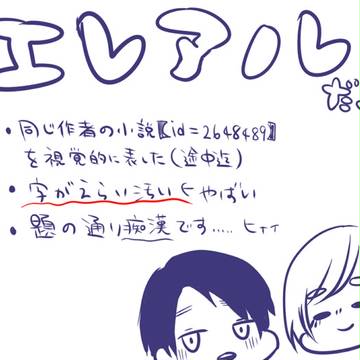 エレアル
だ
・同じ作者の小説【id=2648489】
を視覚的に表した(途中迄)
・字がえらい汚いヒやばい
・題の通り痴漢です..... ヒィィ